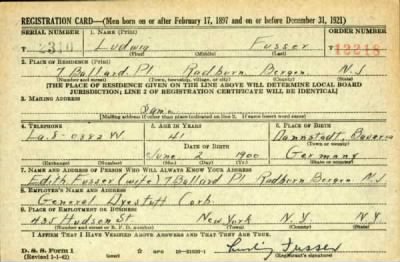 REGISTRATION CARD—(Men born on or after February 17, 1897 and on or before December 31, 1921)
SERIAL NUMBER 1. NAME (Print) ORDER NUMBER
Ludwig Fusser
(First) (Middle) (Last)
2. PLACE OF RESIDENCE (Print)
7 Ballard Pl Radburn Bergen N.J
(Number and street) (Town, township, village, or city) (County) (State)
[THE PLACE OF RESIDENCE GIVEN ON THE LINE ABOVE WILL DETERMINE LOCAL BOARD
JURISDICTION; LINE 2 OF REGISTRATION CERTIFICATE WILL BE IDENTICAL]
3. MAILING ADDRESS
Same
[Mailing address if other than place indicated on line 2. If same insert word same]
4. TELEPHONE 5. AGE IN YEARS 6. PLACE OF BIRTH
41
DATE OF BIRTH (Town or county)
June 2 1900 Germany
(Exchange) (Number) (Mo.) (Day) (Yr.) (State or country)
7. NAME AND ADDRESS OF PERSON WHO WILL ALWAYS KNOW YOUR ADDRESS
Edith Fusser (wife) 7 Ballard Pl Radburn Bergen N.J
8. EMPLOYER'S NAME AND ADDRESS
General Dyestuff Corp.
9. PLACE OF EMPLOYMENT OR BUSINESS
435 Hudson St New York N.Y. N.Y
(Number and street or R. F. D. number) (Town) (County) (State)
I AFFIRM THAT I HAVE VERIFIED ABOVE ANSWERS AND THAT THEY ARE TRUE.
D. S. S. Form 1
(Revised 1-1-42) Ludwig Fusser
(Registrant's signature)